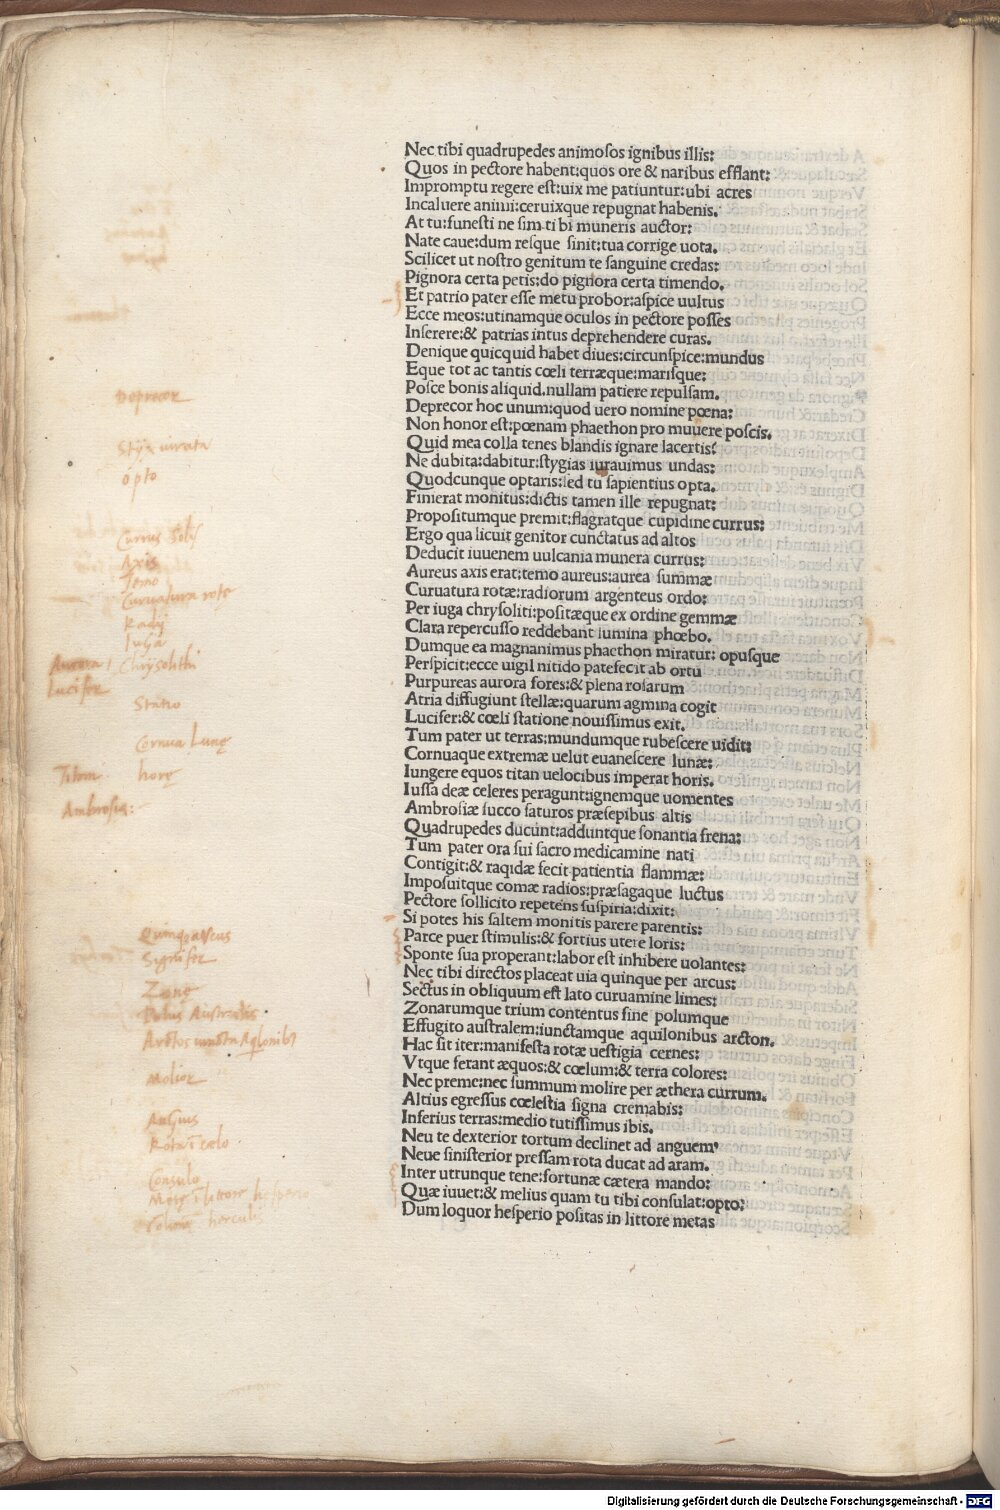 Nec tibi quadrupedes animoſos ignibus illis:
Quos in pectore habent:quos ore & naribus efflant:
Impromptu regere eſt:uix me patiuntur:ubi acres
Incaluere animi:ceruixque repugnat habenis.
At tu:funeſti ne ſim tibi muneris auctor:
Nate caue:dum reſque ſinit:tua corrige uota.
Scilicet ut noſtro genitum te ſanguine credas:
Pignora certa petis:do pignora certa timendo.
Et patrio pater eſſe metu probor:aſpice uultus
Ecce meos:utinamque oculos in pectore poſſes
Inſerere:& patrias intus deprehendere curas.
Denique quicquid habet diues:circunſpice:mundus
Eque tot ac tantis cœli terræque:mariſque:
Poſce bonis aliquid.nullam patiere repulſam.
Deprecor
Deprecor hoc unum:quod uero nomine pœna:
Non honor eſt:pœnam phaethon pro muuere poſcis.
Quid mea colla tenes blandis ignare lacertis:
Styx iurata
Ne dubita:dabitur:ſtygias iurauimus undas:
opto
Quodcunque optaris:ſed tu ſapientius opta.
Finierat monitus:dictis tamen ille repugnat:
Propoſitumque premit:flagratque cupidine currus:
Ergo qua licuit genitor cunctatus ad altos
Currus Solis
Deducit iuuenem uulcania munera currus:
Axis
Temo
Aureus axis erat:temo aureus:aurea ſummæ
Curuatura rote
Curuatura rotæ:radiorum argenteus ordo:
Radij
Iuga
Per iuga chryſoliti:poſitæque ex ordine gemmæ
Chrysolithi
Clara repercuſſo reddebant lumina phœbo.
Dumque ea magnanimus phaethon miratur: opuſque
Aurora
Perſpicit:ecce uigil nitido patefecit ab ortu
Lucifer
Purpureas aurora fores:& plena roſarum
Statio
Atria diffugiunt ſtellæ:quarum agmina cogit
Lucifer:& cœli ſtatione nouiſſimus exit.
Tum pater ut terras:mundumque rubeſcere uidit:
Cornua Lunę
Cornuaque extremæ uelut euaneſcere lunæ:
Titan horę
Iungere equos titan uelocibus imperat horis.
Iuſſa deæ celeres peragunt:ignemque uomentes
Ambrosia:
Ambroſiæ ſucco ſaturos præſepibus altis
Quadrupedes ducunt:adduntque ſonantia frena:
Tum pater ora ſui ſacro medicamine nati
Contigit:& raqidæ fecit patientia flammæ:
Impoſuitque comæ radios:præſagaque luctus
Pectore ſollicito repetens ſuſpiria:dixit:
Si potes his ſaltem monitis parere parentis:
Parce puer ſtimulis:& fortius utere loris:
Sponte ſua properant:labor eſt inhibere uolantes:
Signifer
Nec tibi directos placeat uia quinque per arcus:
Sectus in obliquum eſt lato curuamine limes:
Zonę
Zonarumque trium contentus fine polumque
Polus Australis
Effugito auſtralem:iunctamque aquilonibus arcton.
Hac ſit iter:manifeſta rotæ ueſtigia cernes:
Vtque ferant æquos:& cœlum:& terra colores:
Molior
Nec preme:nec ſummum molire per æthera currum.
Altius egreſſus cœleſtia ſigna cremabis:
Inferius terras:medio tutiſſimus ibis.
Anguis
Neu te dexterior tortum declinet ad anguem
Neue ſiniſterior preſſam rota ducat ad aram.
Inter utrunque tene:fortunæ cætera mando:
Consulo
Quæ iuuet:& melius quam tu tibi conſulat:opto:
Dum loquor heſperio poſitas in littore metas
Digitalisierung gefördert durch die Deutsche Forschungsgemeinschaft - DFG